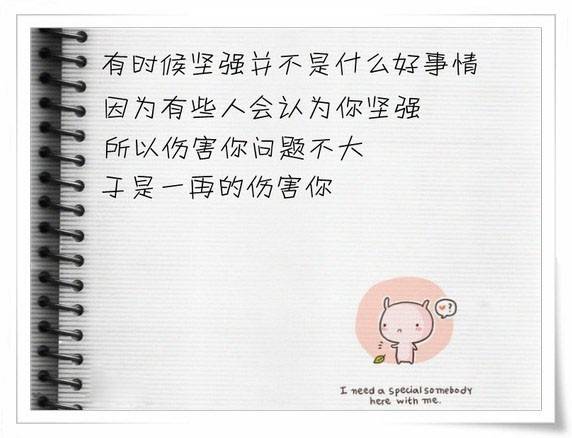 有时候坚强并不是什么好事情
因为有些人会认为你坚强
所以伤害你问题不大
于是一再的伤害你
?
I need a special somebody
here with me.